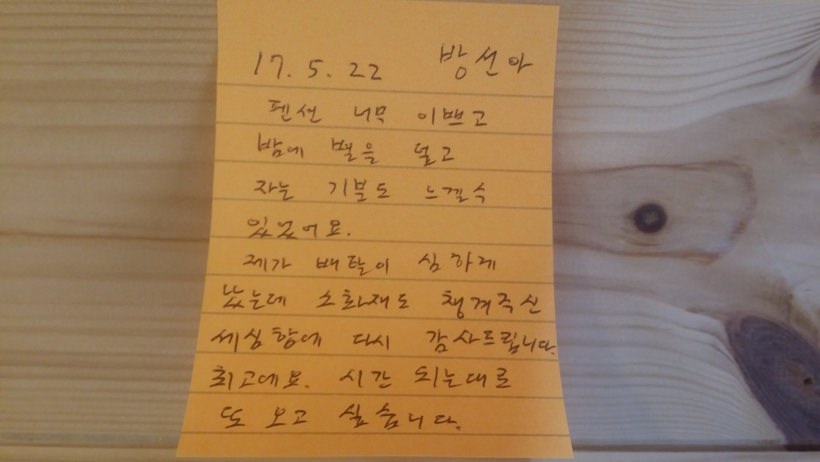 17. 5. 22 방선아
펜션 너무 이쁘고
밤에 별을 덮고
자는 기분도 느낄수
있었어요.
제가 배탈이 심하게
났는데 소화재도 챙겨주신
세심함에 다시 감사드립니다.
최고에요. 시간 되는대로
또 오고 싶습니다.